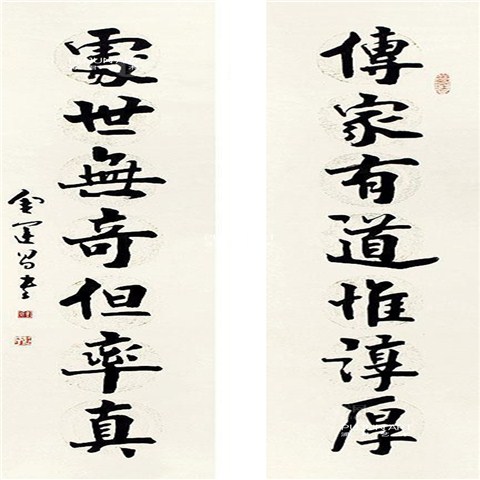 傳家有道惟淳厚
處世無奇但率真
金運昌書